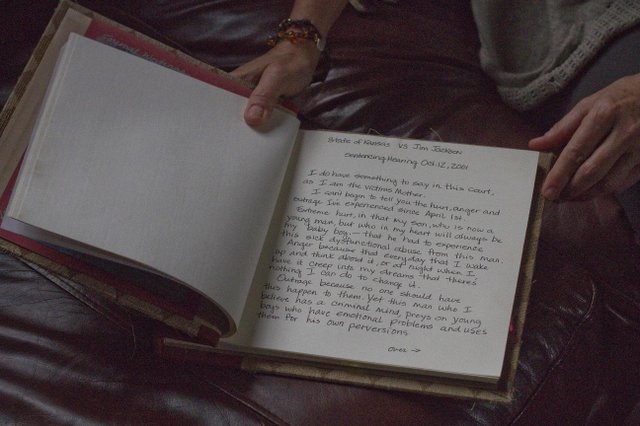 State of Kansas vs Jon Jackson
Sentencing Hearing Oct. 12, 2001
I do have something to say in this court,
as I am the victims Mother.
I can't begin to tell you the hurt, anger and
outrage I've experienced since April 1st.
Extreme hurt, in that my son, who is now a
young man, but who in my heart will always be
my "baby boy" — that he had to experience
this sick dysfunctional abuse from this man.
Anger because that everyday that I wake
up and think about it, or at night when I
have it creep into my dreams that there's
nothing I can do to change it.
Outrage because no one should have
this happen to them. Yet this man who I
believe has a criminal mind, preys on young
boys who have emotional problems and uses
them for his own perversions.
over →